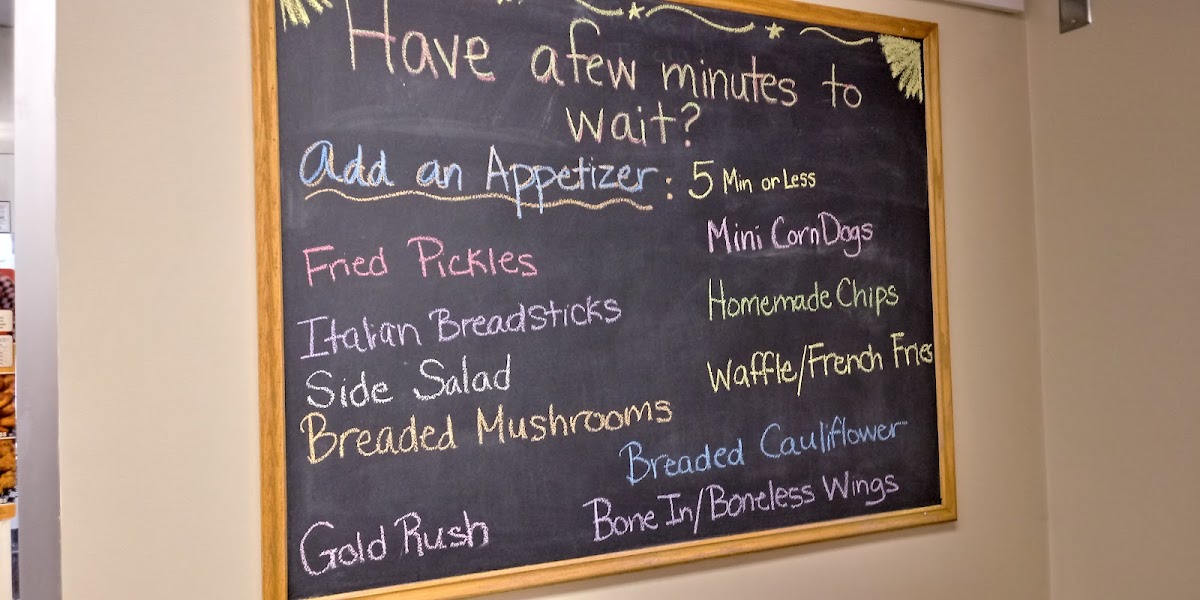 Have a few minutes to
wait?
Add an Appetizer: 5 Min or Less
Fried Pickles
Mini Corn Dogs
Italian Breadsticks
Homemade Chips
Side Salad
Waffle/French Fries
Breaded Mushrooms
Breaded Cauliflower
Gold Rush
Bone In/Boneless Wings